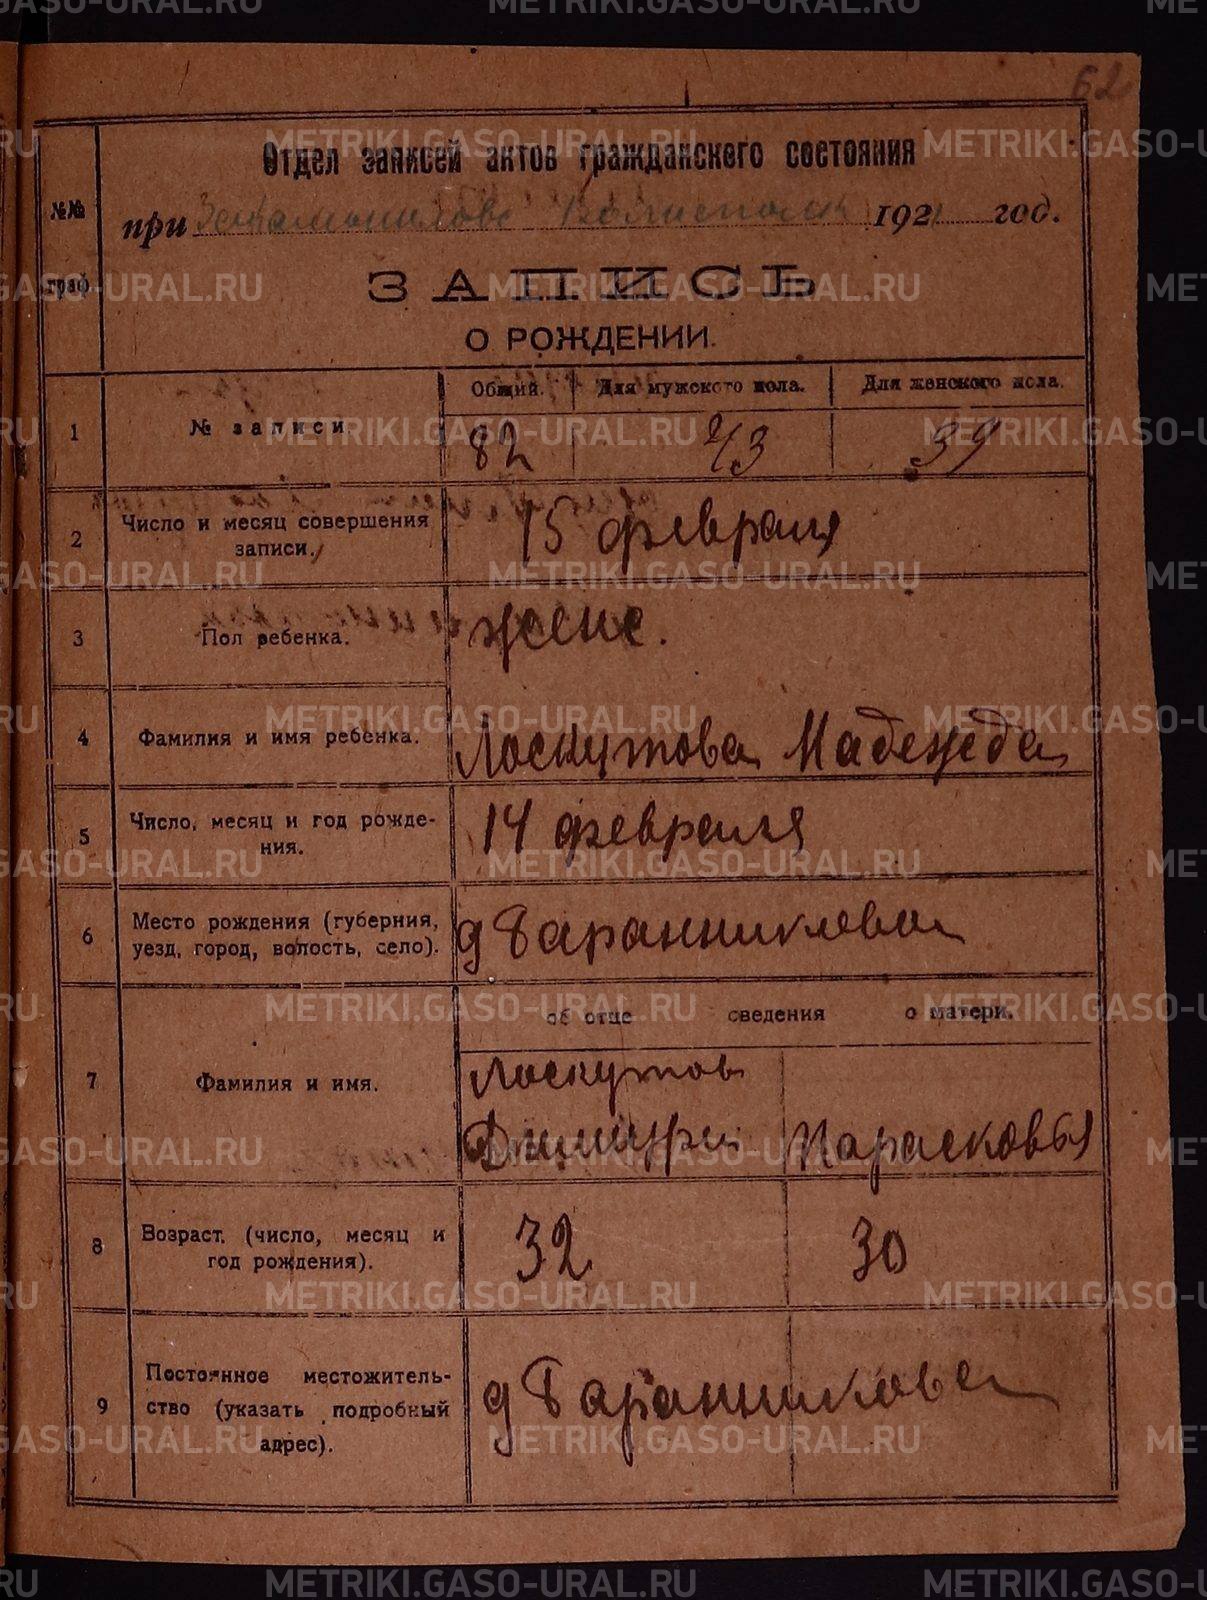 62
Отдел записей актов гражданского состояния
№№ граф.
при 192 год.
ЗАПИСЬ
О РОЖДЕНИИ.
Общий. Для мужского пола. Для женского пола.
1 № записи 82 43 39
2 Число и месяц совершения записи. 15 февраля
3 Пол ребенка. женс.
4 Фамилия и имя ребенка. Лоскутова Надежда
5 Число, месяц и год рожде-
ния.
14 февраля
6 Место рождения (губерния,
уезд, город, волость, село).
д Баранникова
об отце сведения о матери.
7 Фамилия и имя.
Лоскутов
Димитри Парасковья
8 Возраст. (число, месяц и
год рождения).
32 30
9 Постоянное местожитель-
ство (указать подробный
адрес).
д Баранникова
METRIKI.GASO-URAL.RU